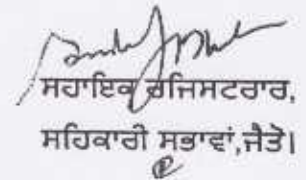 ਸਹਾਇਕ ਰਜਿਸਟਰਾਰ,
ਸਹਿਕਾਰੀ ਸਭਾਵਾਂ,ਜੈਤੋ।